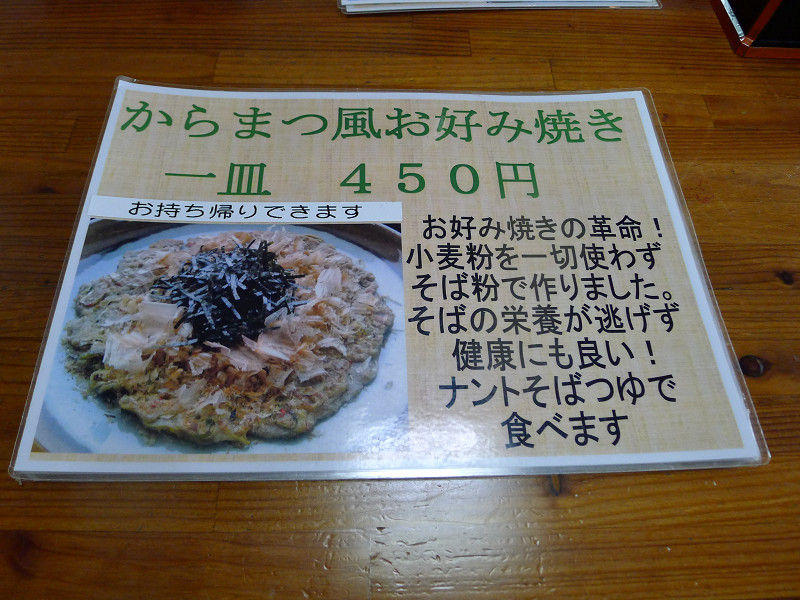 からまつ風お好み焼き
一皿　４５０円
お持ち帰りできます
お好み焼きの革命！
小麦粉を一切使わず
そば粉で作りました。
そばの栄養が逃げず
健康にも良い！
ナントそばつゆで
食べます